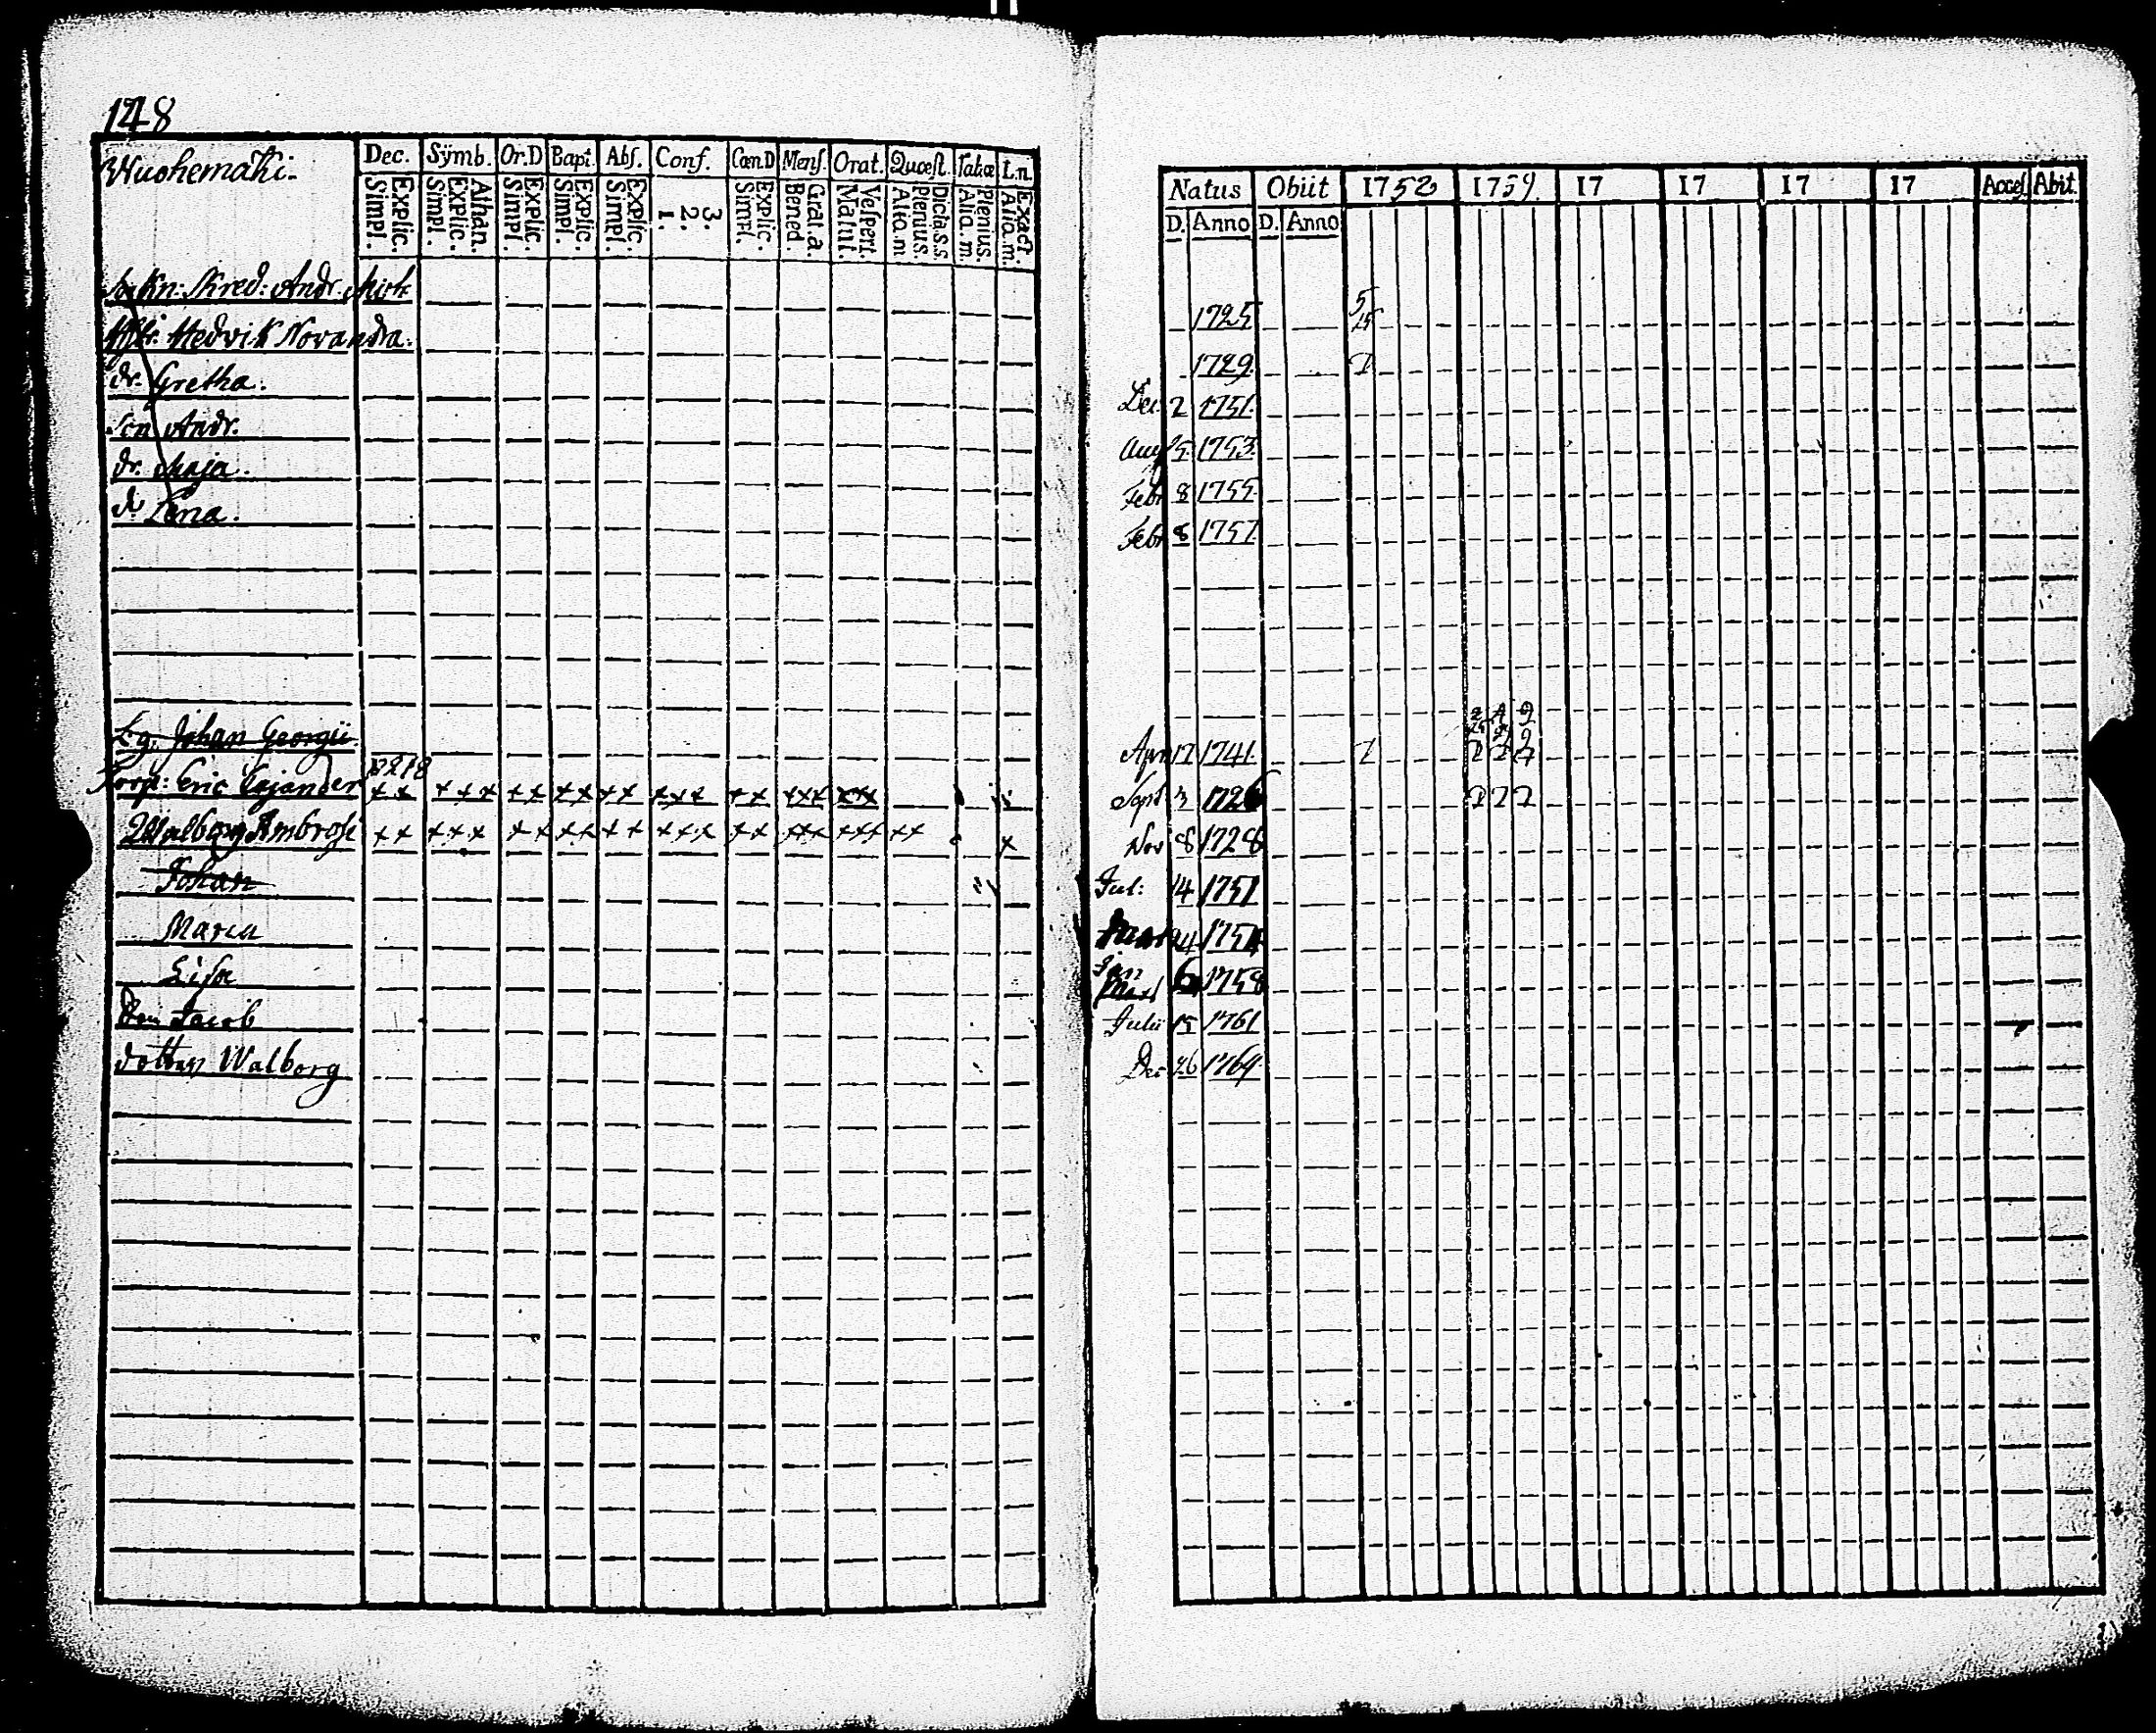 148
Wuohemäki.
Dec. Symb. Or.D Bapt. Abs. Conf. Cœn.D Mens. Orat. Quæst. Tabæ L.n.
Simpl. Explic. Simpl. Explic. Athan. Simpl. Explic. Simpl. Explic. Simpl. Explic. 1. 2. 3. Simpl. Explic. Bened. Grat.a. Matut. Vespert. Alio.m Plenius. Dicta.s.s. Alio.m Plenius. Alio.m. Exact.
Natus Obiit 1752 1759. 17 17 17 17 Acces. Abit.
D. Anno D. Anno
Kn: Skred: Andr. 1725 5
Hedvik Novandra. 1729. 7
dr. Gretha. Dec. 2 1751.
Son Andr. Aug 5 1753.
dr. Maja. Febr 8 1755.
dr Lena. Febr 8 1757.
Johan Georgii. Apr 17 1741. 7
p 218
Eric Cajander ×× ××× ×× ×× ×× ××× ×× ××× ××× Sept 3 1726 7 7 7
Walborg Ambrosi ×× ××× ×× ×× ×× ××× ×× ××× ××× ×× × Nov 8 1728
Johan Jul: 14 1751
Maria 24 1754
Lisa Jan 6 1758
Son Jacob Julii 15 1761
dotter Walborg Dec 26 1764.